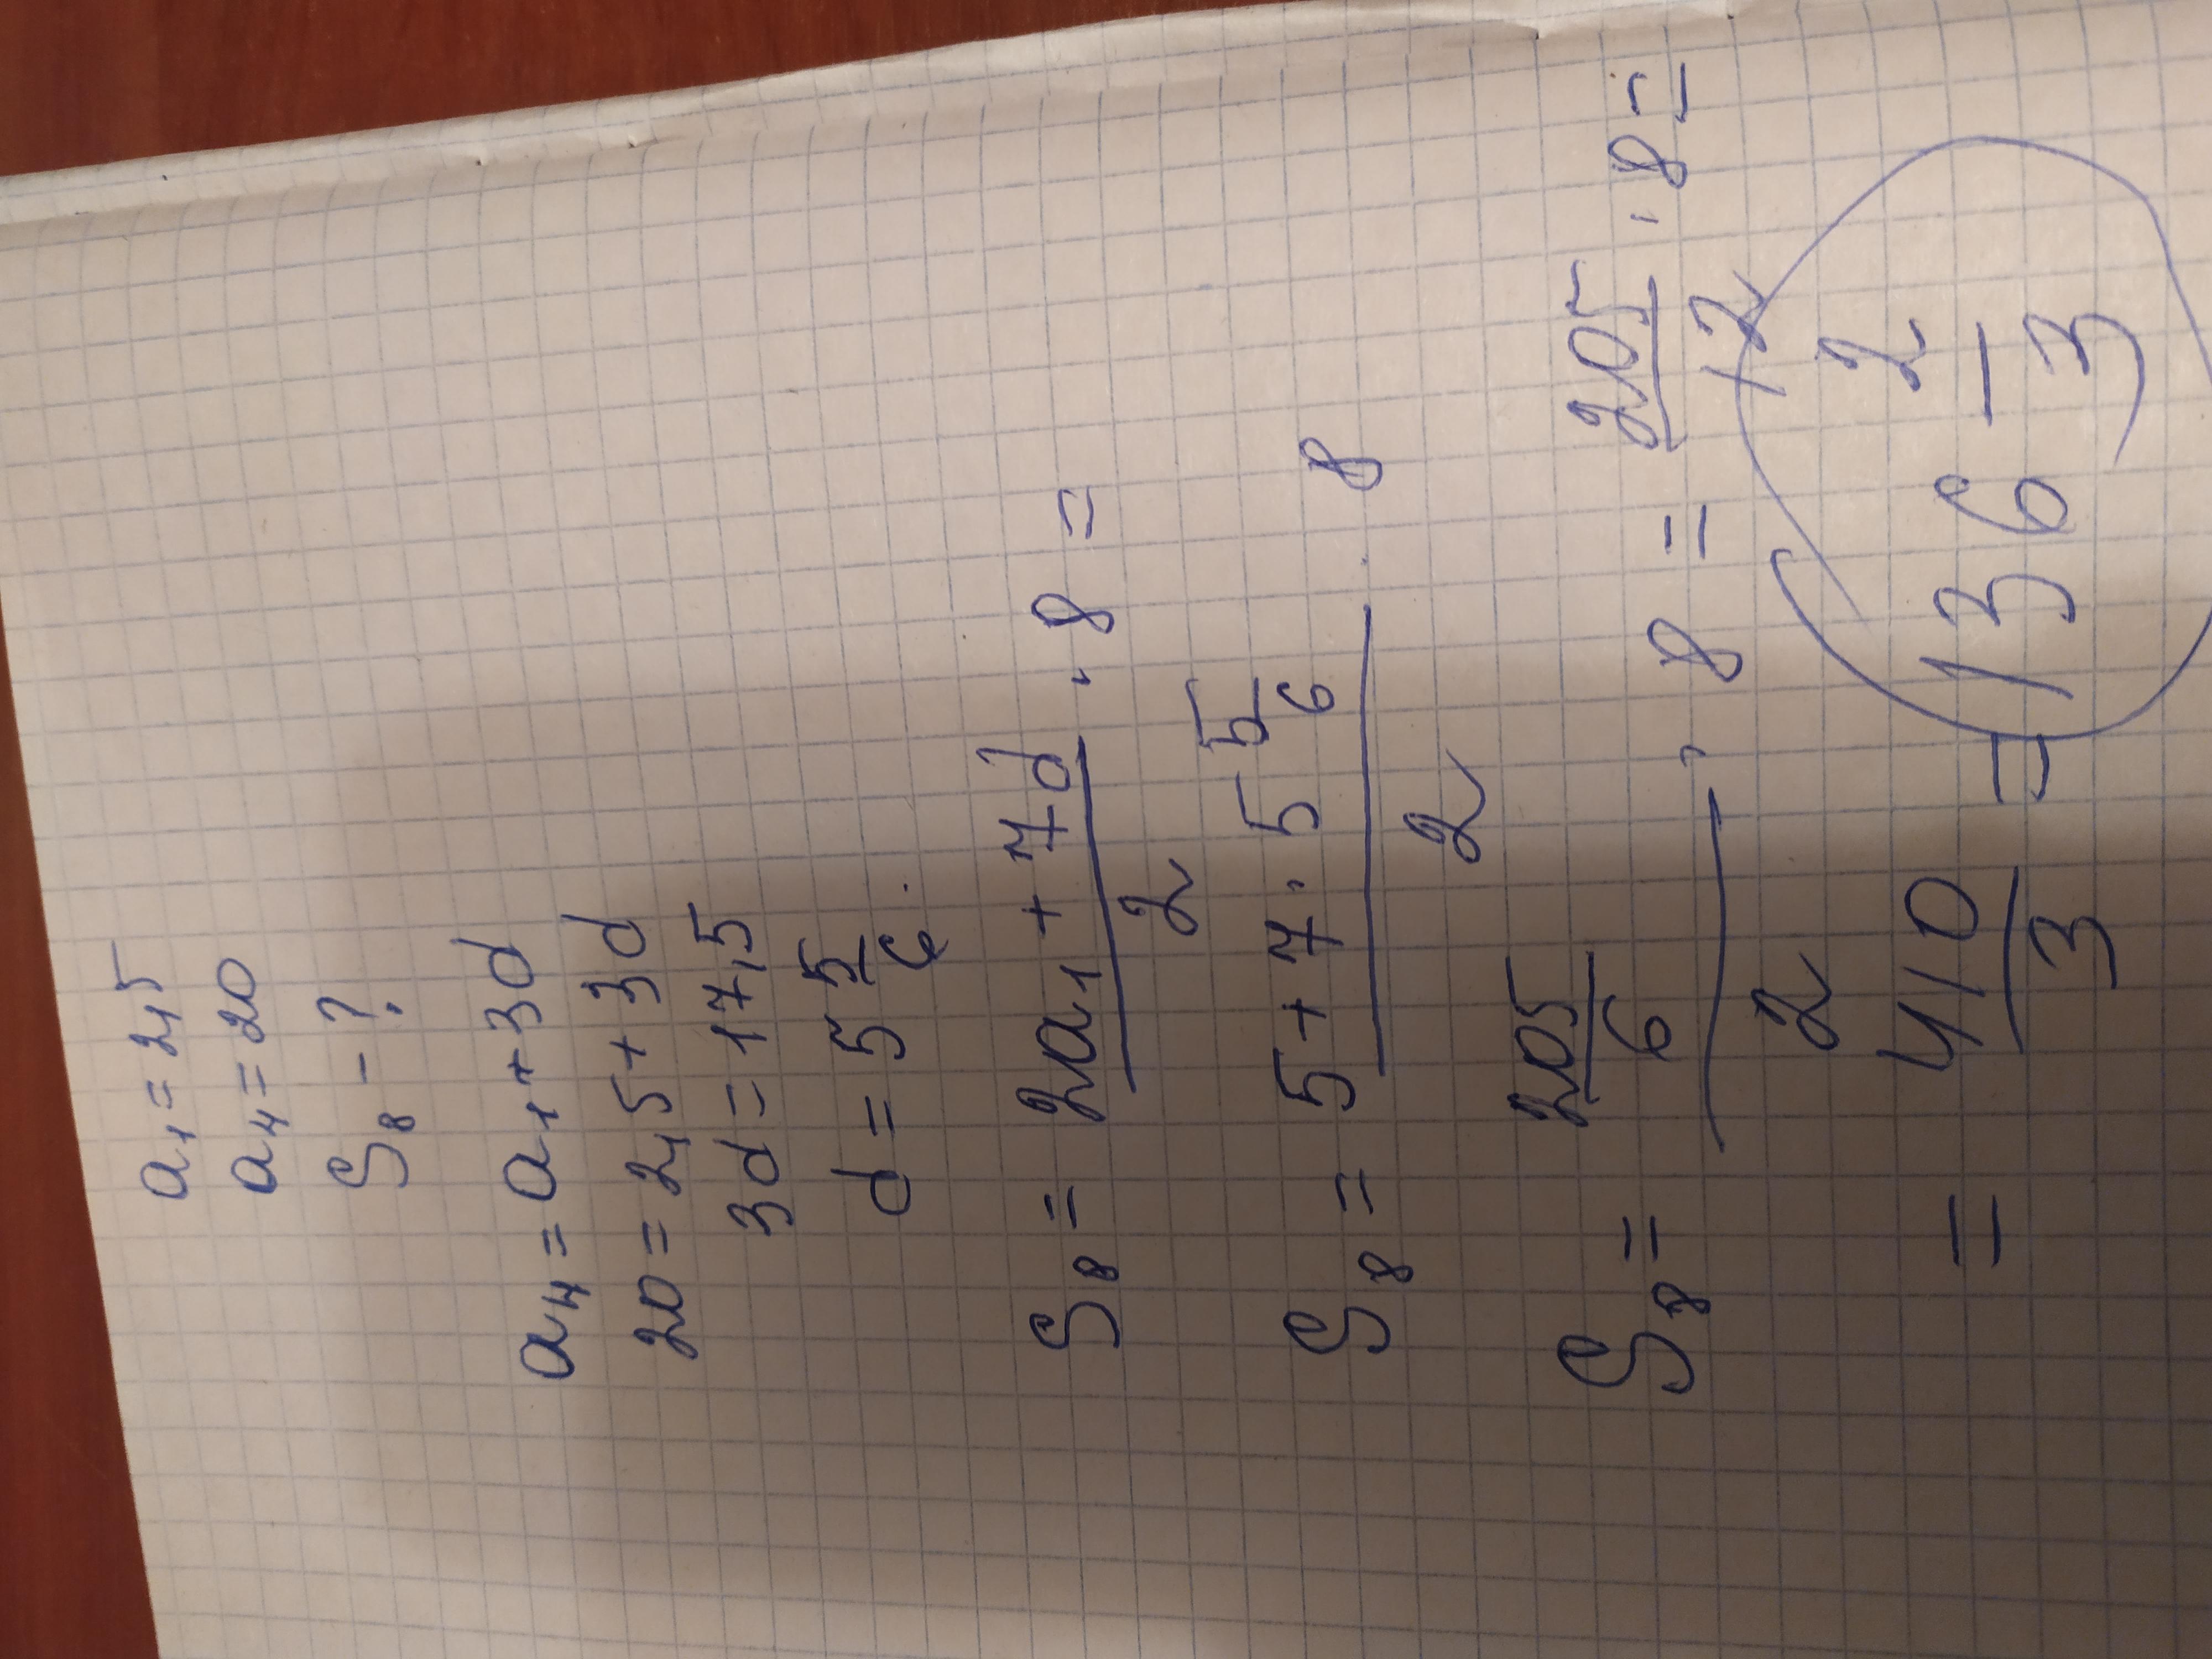 a₁ = 2,5
a₄ = 20
S₈ - ?
a₄ = a₁ + 3d
20 = 2,5 + 3d
3d = 17,5
d = 5 5/6.
S₈ = (2a₁ + 7d)/2 · 8 =
S₈ = (5 + 7 · 5 5/6)/2 · 8
S₈ = (205/6)/2 · 8 = 205/12 · 8 =
= 410/3 = 136 2/3